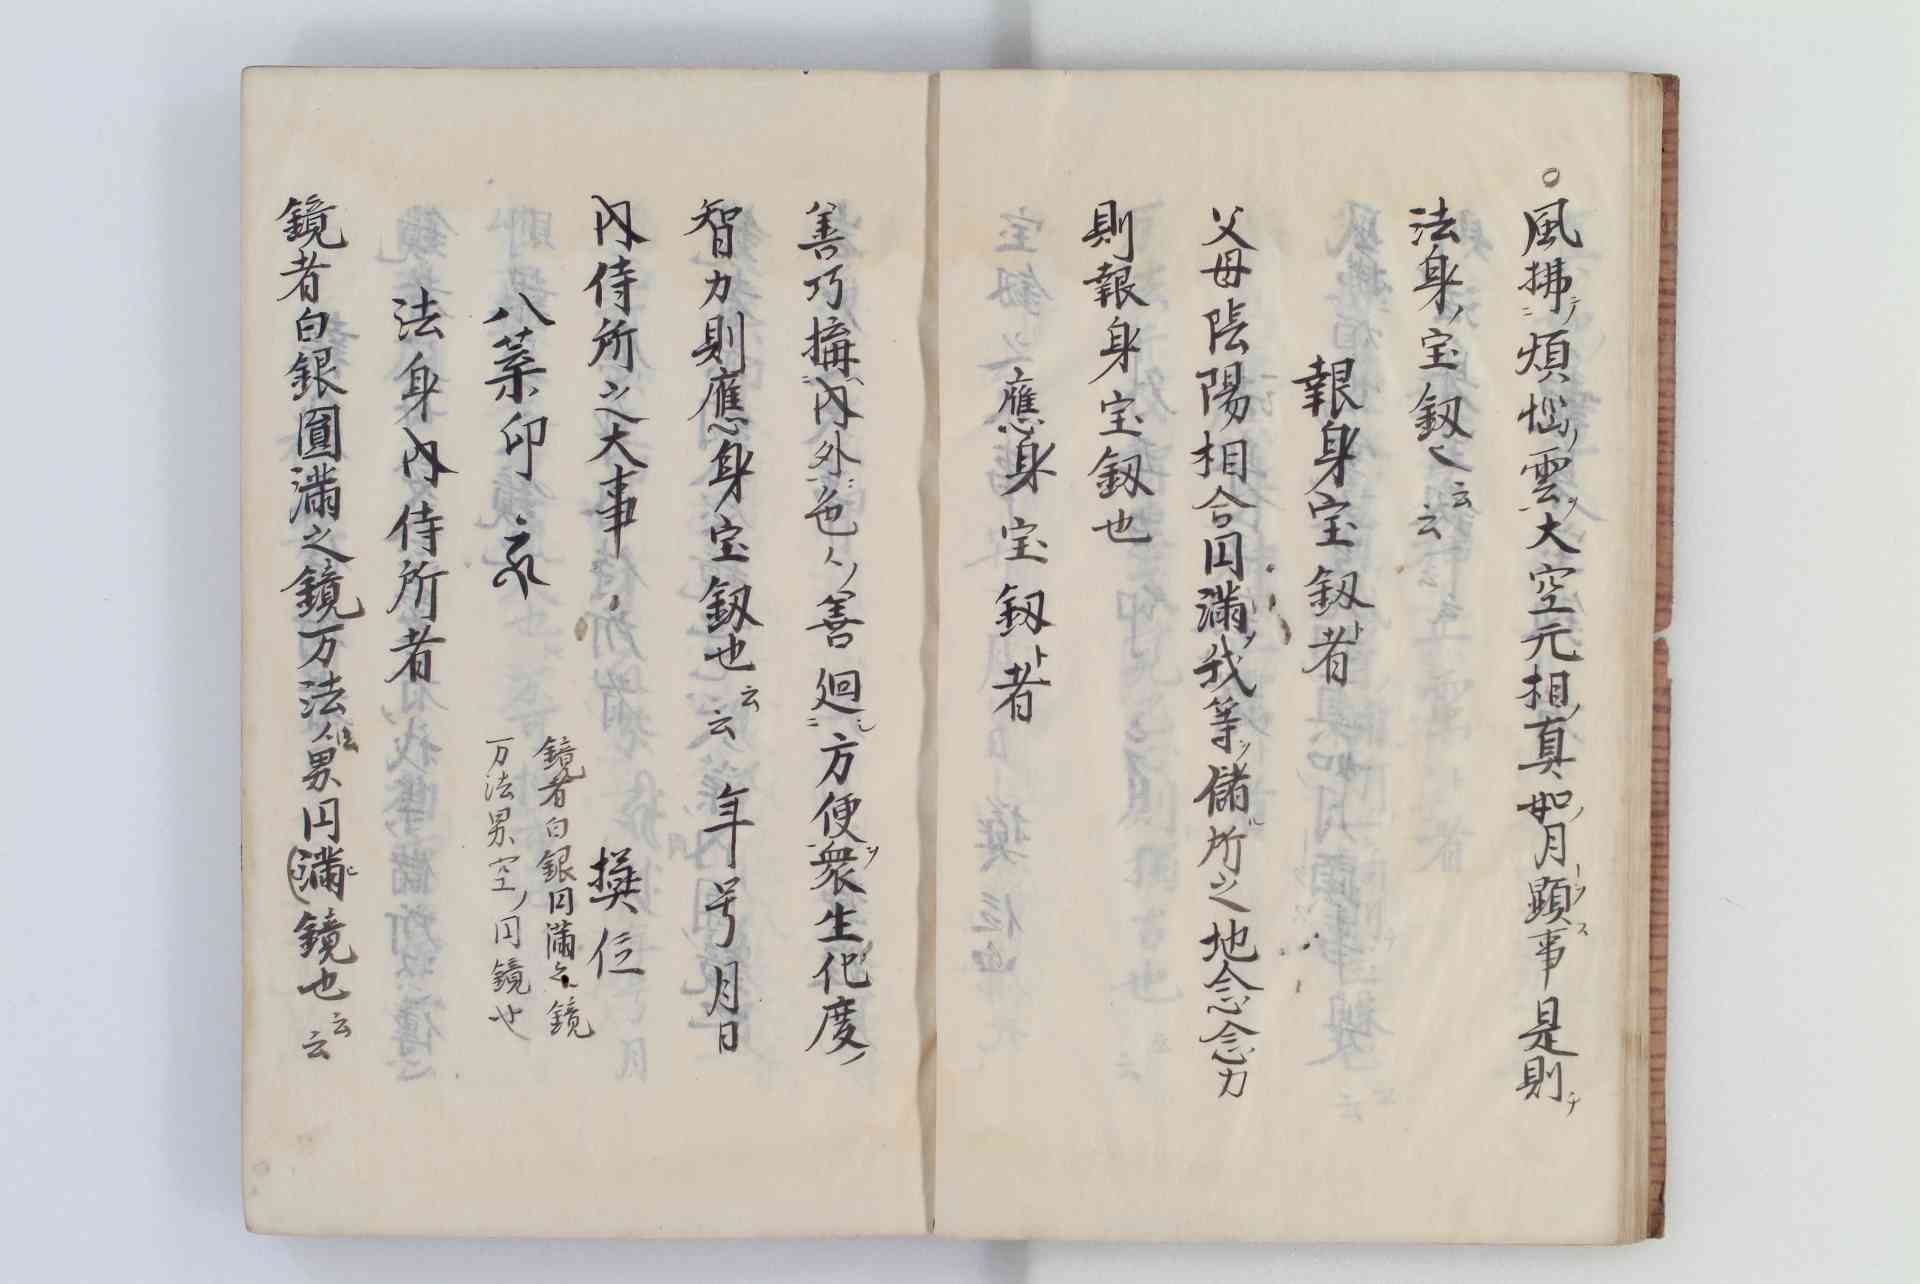 ○風拂煩悩ノ雲ヲ大空元相ノ真如ノ月顕事是則チ
法身ノ宝釼也云云
報身宝釼者ト
父母陰陽相合円満シ我等ヲ儲ル所之地念念力
則報身宝釼也
應身宝釼者ト
善巧
内外色人ノ善廻シ方便衆生ヲ化度ノ
智力則應身宝釼也云云 年号月日
内侍所之大事 授位
八葉印
鏡者白銀円満之鏡
万法界空ノ円鏡也
法身内侍所者
鏡者白銀圓満之鏡万法界円満鏡也云云